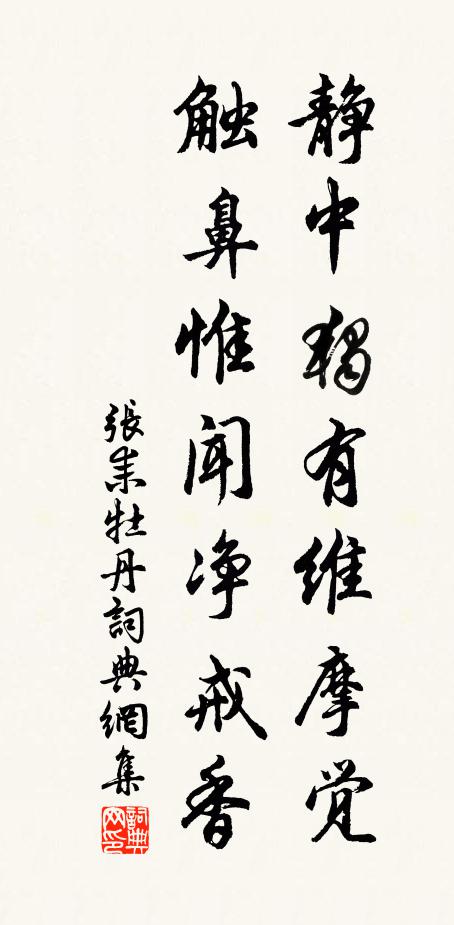 静中独有维摩觉
触鼻惟闻净戒香
張耒牡丹詞典網集
詞典网印